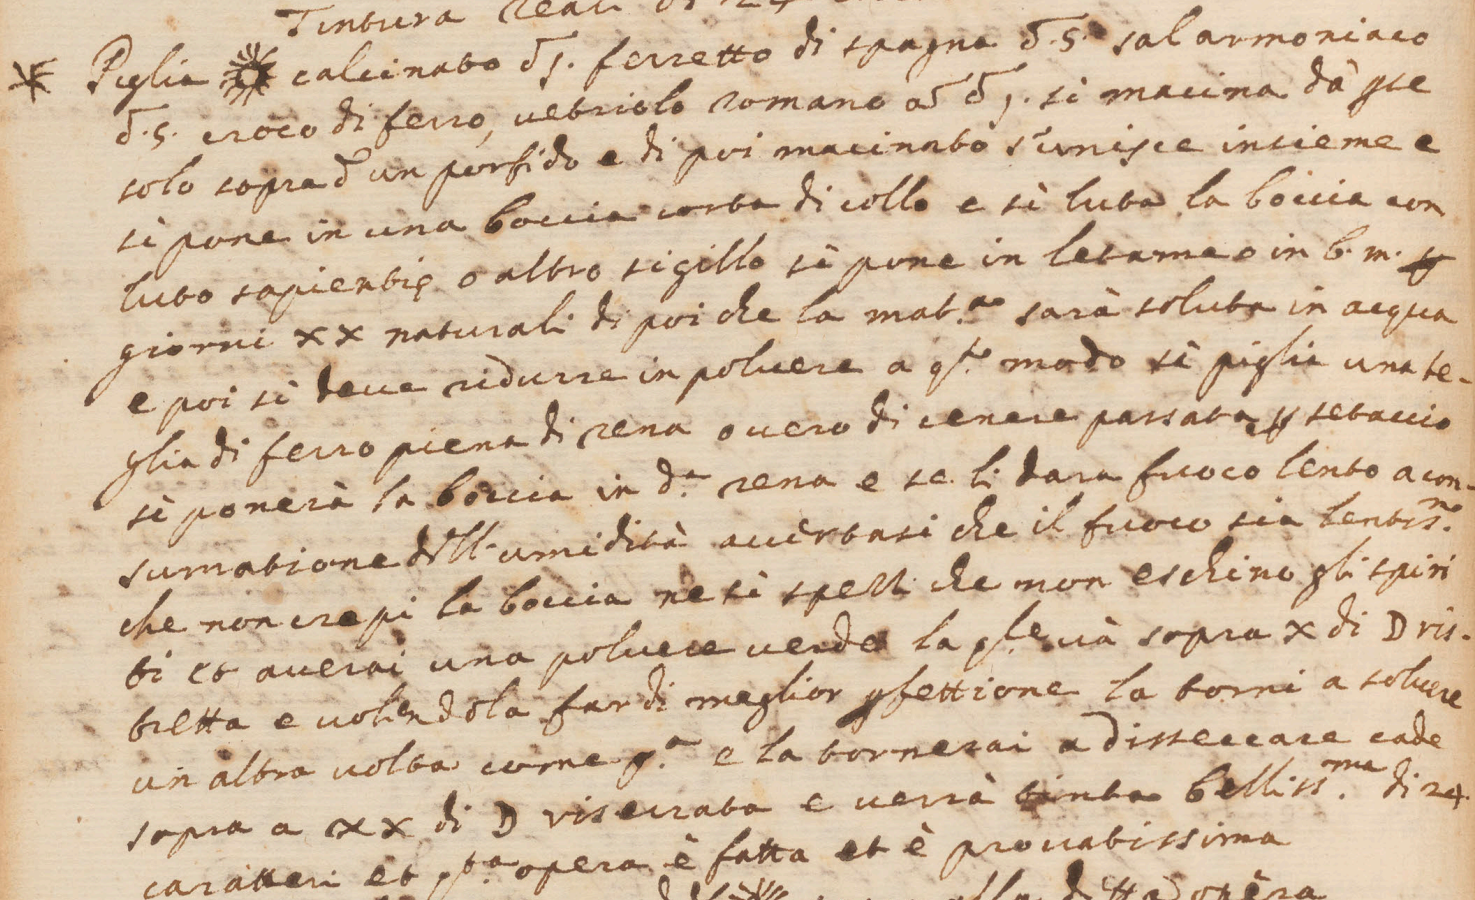 Tintura reali di 24
Piglia ☉ calcinato ʒj. ferretto di spagna ʒ.s. sal armoniaco
ʒ.s. croco di ferro, vetriolo romano añ ʒj. si macina dà p̱se
solo sopra d un porfido e di poi macinato s'unisce insieme e
si pone in una boccia torta di collo e si luta la boccia con
luto sapientię o altro sigillo si pone in letame o in b. m.
giorni XX naturali di poi che la mat.a sarà soluta in acqua
e poi si deve ridurre in polvere a q.to modo si piglia una te-
glia di ferro piena di rena overo di cenere passata ꝑ setaccio
si ponerà la boccia in d.a rena e se li dara fuoco lento a con-
sumatione dell'umidità avertasi che il fuoco sia lentiss.mo
che non crepi la boccia ne si spelli che non eschino gli spiri
ti et averai una polvere verde la q.le và sopra X di D ris-
tretta e volendola far di meglior ꝑfettione la torni a solvere
un altra volta come p.a e la tornerai a disseccare cade
sopra a XX di D riscrrata e verrà tinta belliss.ma di 24.
caratteri et q.ta opera è fatta et è provatissima
ditta opera